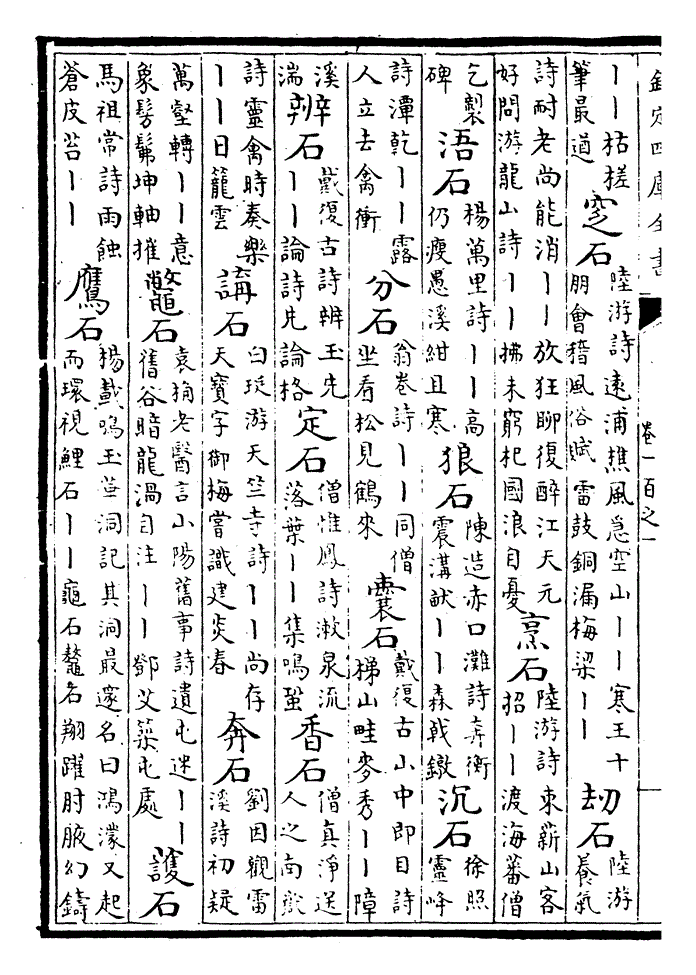 欽定四庫全書 卷一百之一
丨丨枯槎筆最遒 窆石 陸游詩遠浦樵風急空山丨丨寒王十朋會稽風俗賦雷鼓銅漏梅梁丨丨 劫石 陸游養氣
詩耐老尚能消丨丨放狂聊復醉江天元好問游龍山詩丨丨拂未窮杞國浪自憂 烹石 陸游詩束薪山客招丨丨渡海蕃僧
乞製碑 浯石 楊萬里詩丨丨高仍瘦愚溪紺且寒 狠石 陳造赤口灘詩奔衝震溝猷丨丨森戟鐓 沉石 徐照靈峰
詩潭乾丨丨露人立去禽衝 分石 翁卷詩丨丨同僧坐看松見鶴來 囊石 戴復古山中即目詩梯山畦麥秀丨丨障
溪湍 辨石 戴復古詩辨玉先丨丨論詩先論格 定石 僧惟鳳詩漱泉流落葉丨丨集鳴蛩 香石 僧真淨送人之南嶽
詩靈禽時奏樂丨丨日籠雲 講石 白珽游天竺寺詩丨丨尚存天寶字御梅嘗識建炎春 奔石 劉因觀雷溪詩初疑
萬壑轉丨丨意象髣髴坤軸摧 鼈石 袁桷老醫言山陽舊事詩遺屯迷丨丨舊谷暗龍渦自注丨丨鄧艾築屯處 護石
馬祖常詩雨蝕蒼皮苔丨丨 鷹石 楊載鳴玉華洞記其洞最邃名曰鴻濛又起而環視鯉石丨丨龜石鼇名翔躍肘腋幻鑄